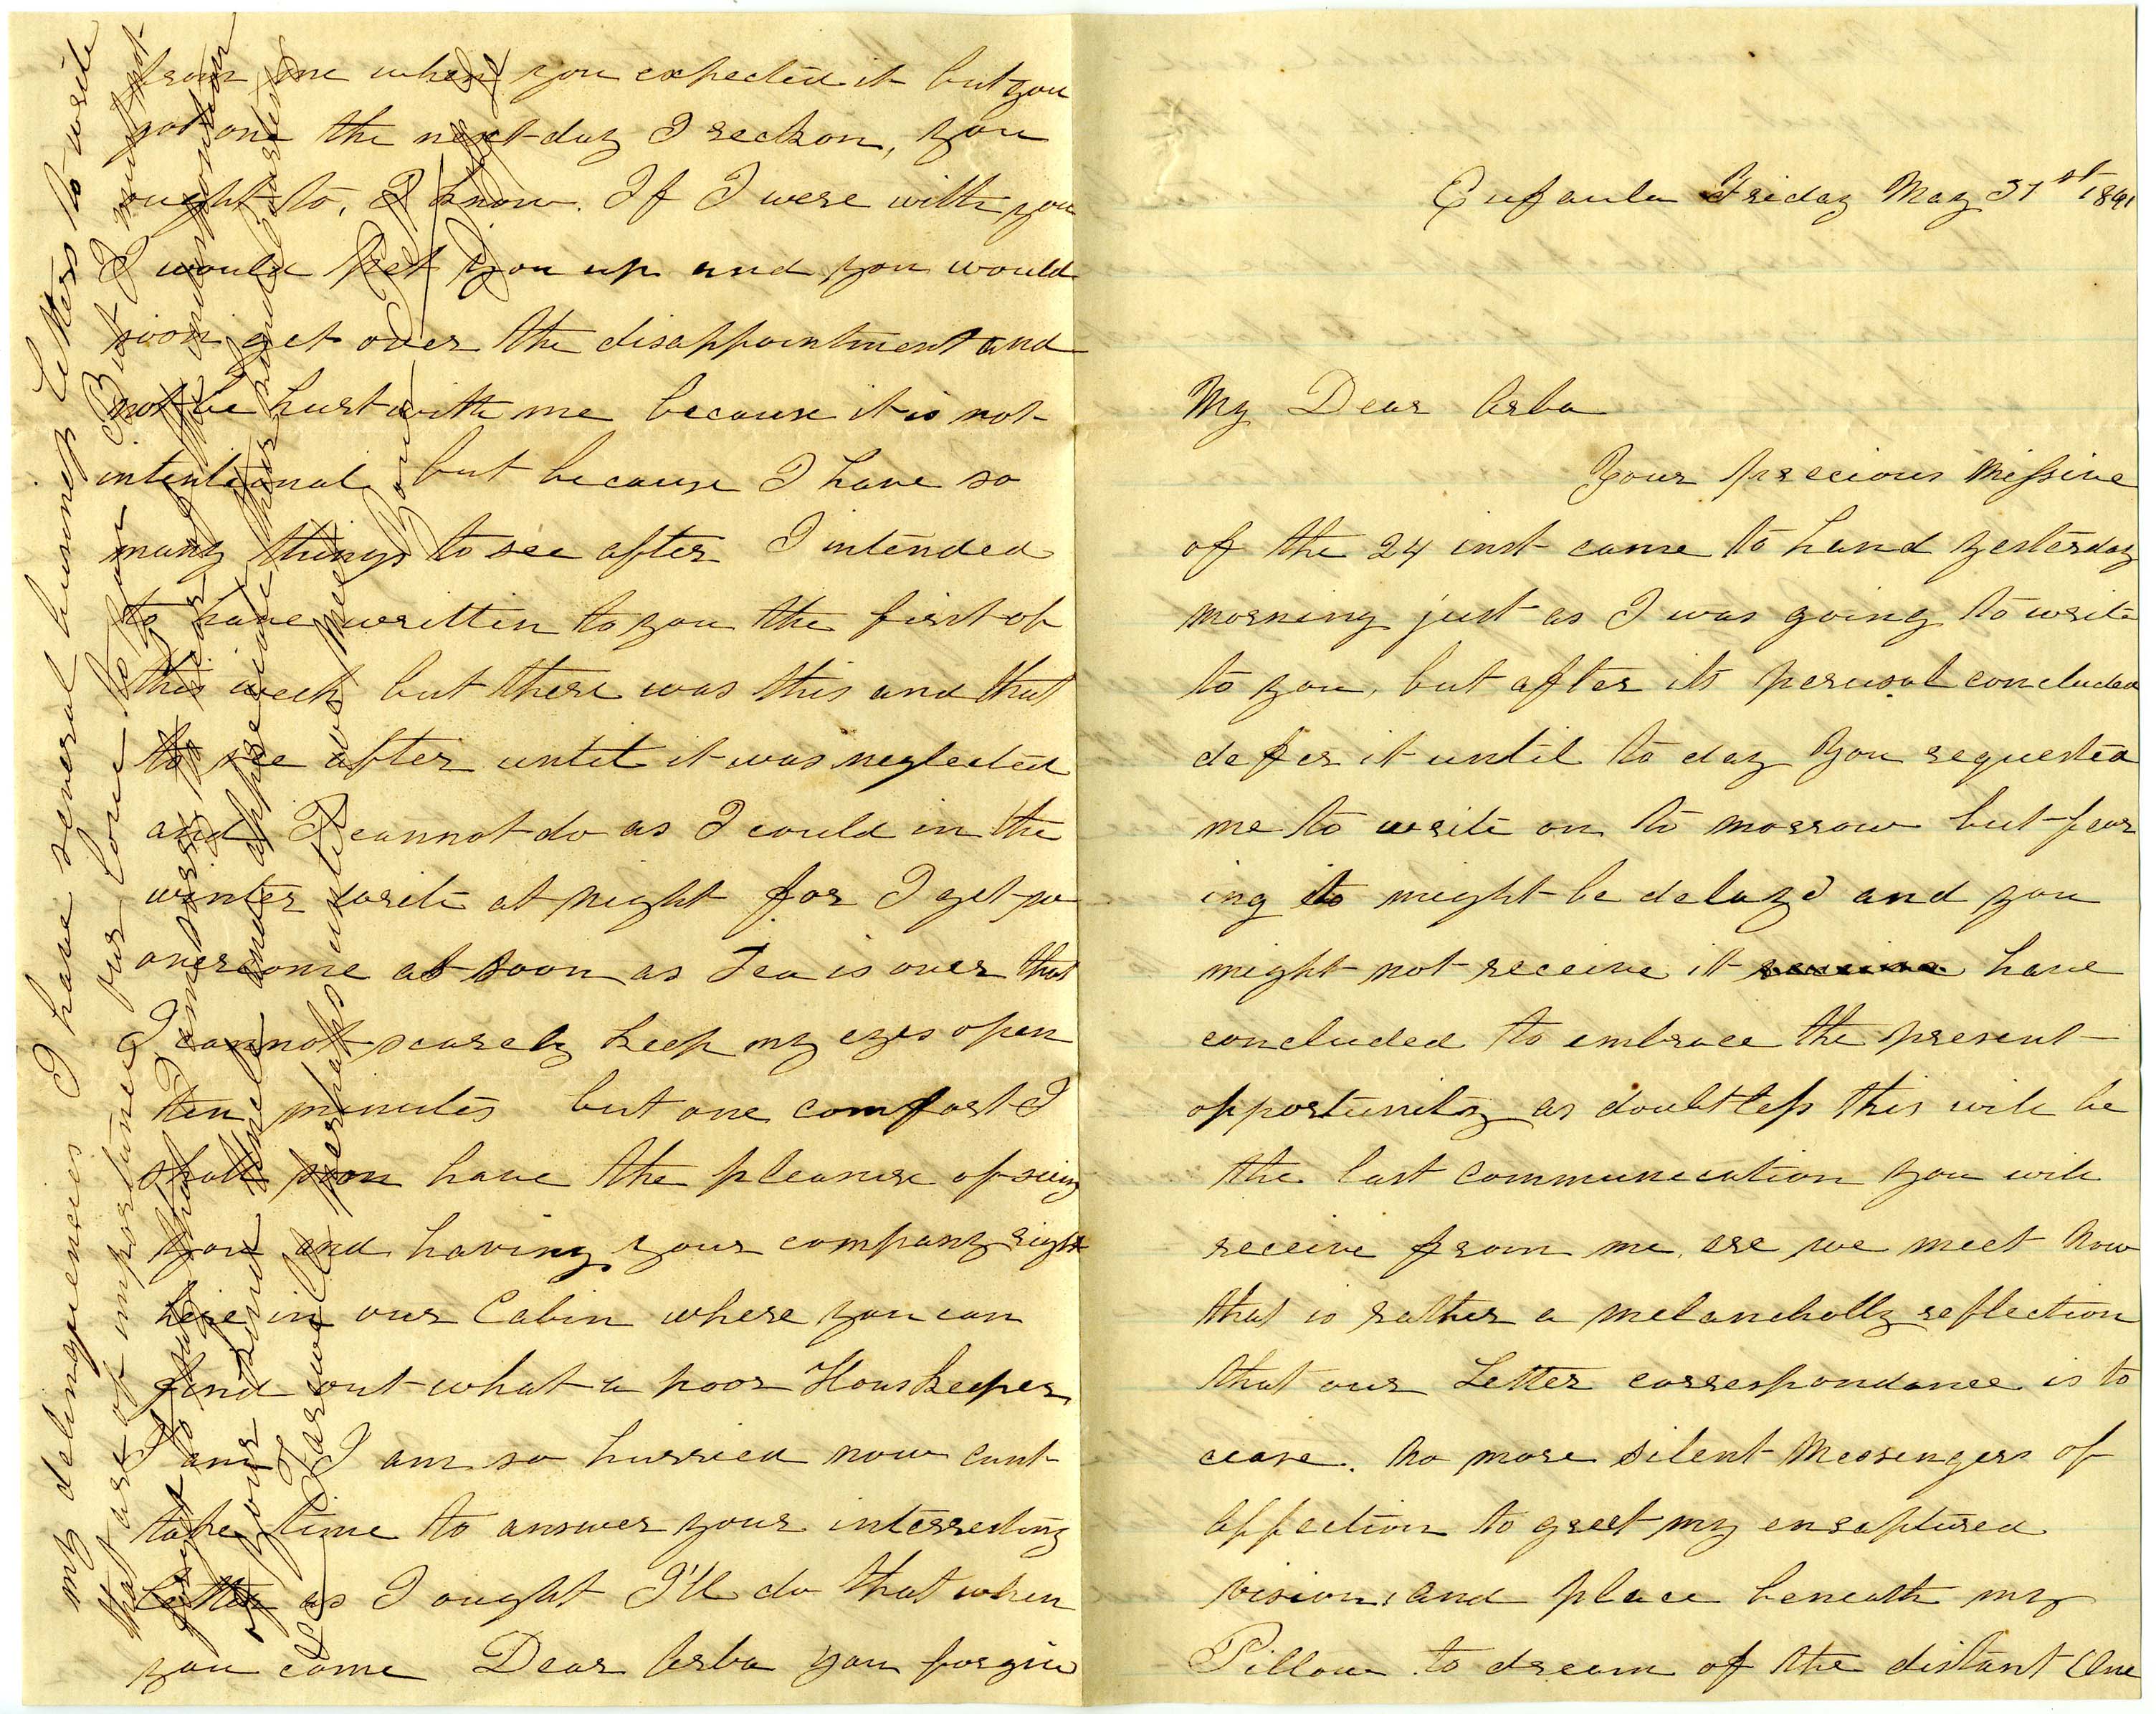 Eufaula Friday May 31st 1861
My Dear Arba
Your precious Missive
of the 24 inst came to hand yesterday
morning just as I was going to write
to you, but after its perusal concluded
defer it until to day You requested
me to write on to morrow but fear
ing it might be delayd and you
might not receive it receive have
concluded to embrace the present
opportunity as doubtless this will be
the last communication you will
receive from me, ere we meet Now
that is rather a melancholly reflection
that our Letter correspondance is to
cease. No more silent Messengers of
affection to greet my enraptured
vision, and place beneath my
Pillow to dream of the distant One
from me when you expected it but you
got one the next day I reckon, you
ought to, I know. If I were with you
I would pet you up and you would
soon get over the disappointment and
not be hurt with me because it is not
intentional but because I have so
many things to see after I intended
to have written to you the first of
this week but there was this and that
to see after until it was neglected
and I cannot do as I could in the
winter write at night for I get so
overcome as soon as Tea is over that
I cannot scarcely keep my eyes open
ten minutes but one comfort I
shall soon have the pleasure of seing
you and having your company right
here in our Cabin where you can
find out what a poor Houskeeper
I am I am so hurried now cant
take time to answer your interresting
Letter as I ought I'll do that when
you come Dear Arba you forgive
my delinquencies I have several business Letters to write
that are of importance our love to your But I must not
forget to
of your kind and appreciative
Farewell perhaps until we meet Yours